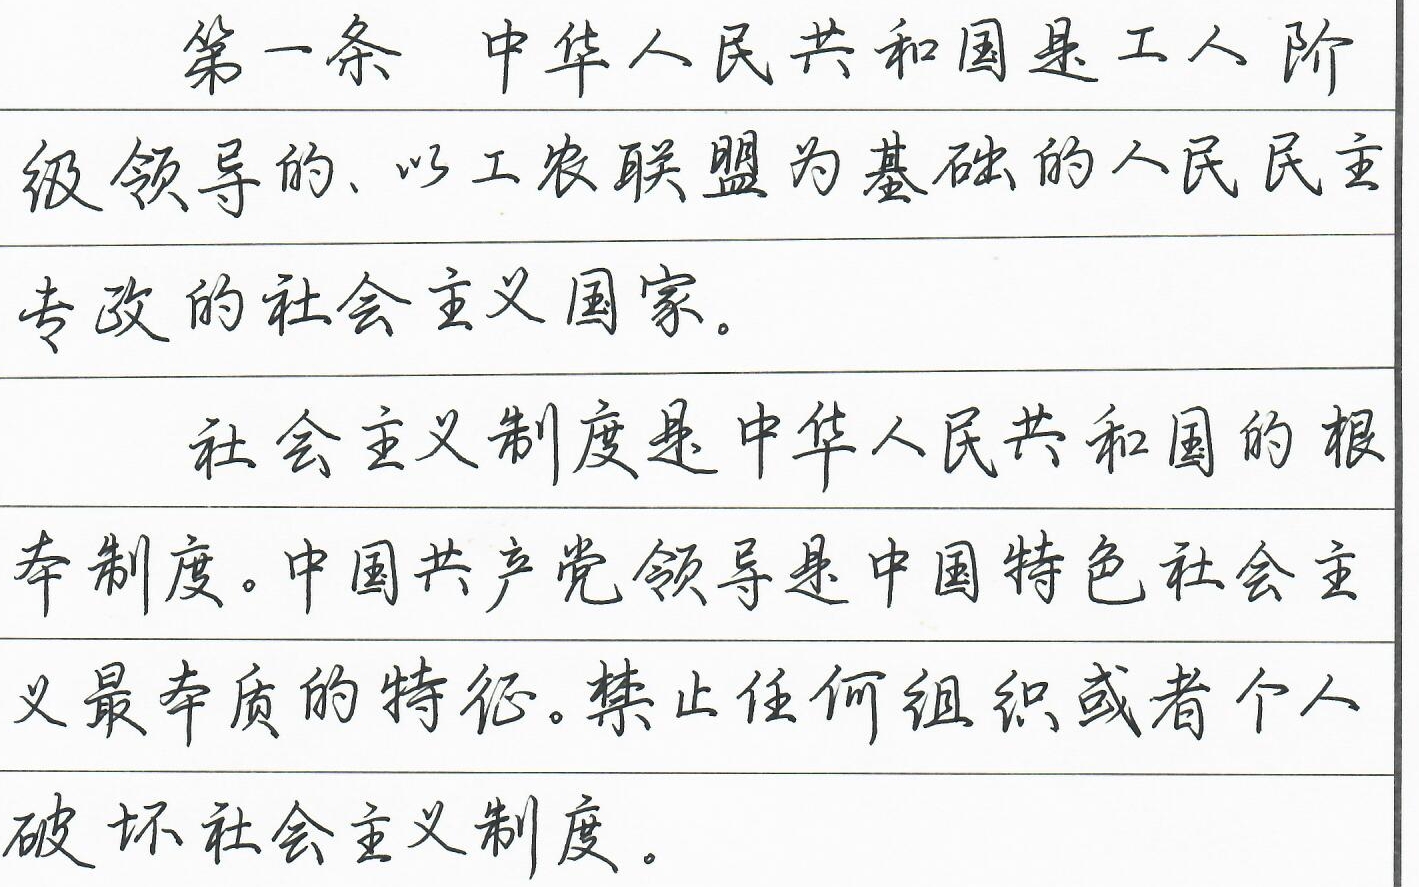 第一条 中华人民共和国是工人阶
级领导的、以工农联盟为基础的人民民主
专政的社会主义国家。
社会主义制度是中华人民共和国的根
本制度。中国共产党领导是中国特色社会主
义最本质的特征。禁止任何组织或者个人
破坏社会主义制度。